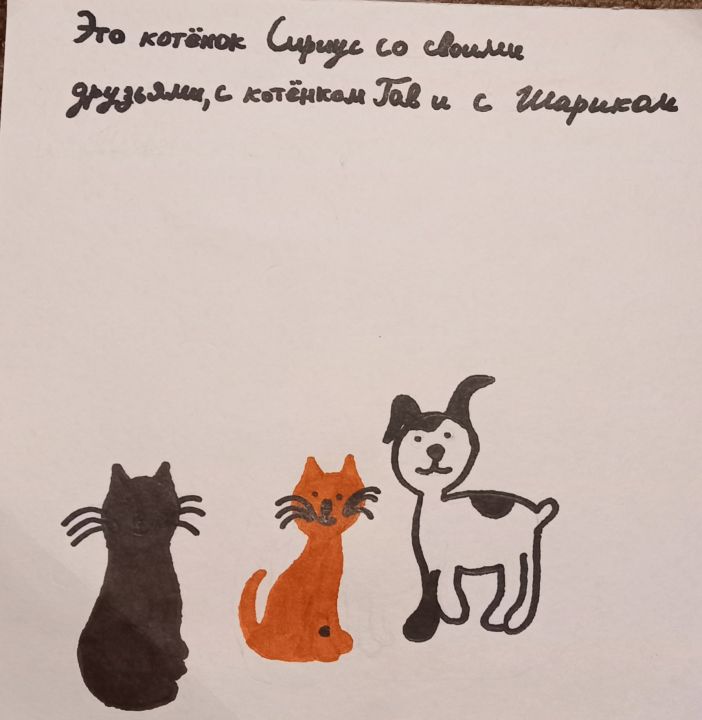 Это котёнок Сириус со своими
друзьями, с котёнком Гав и с Шариком